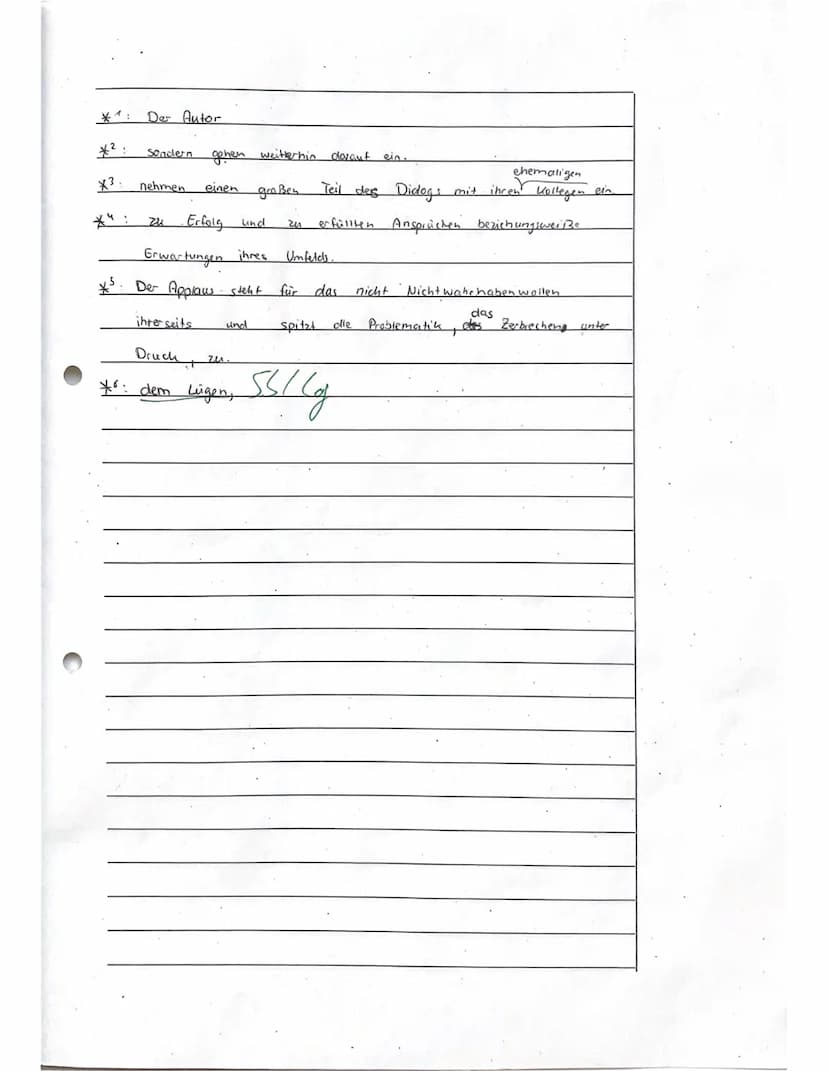 *1: Der Autor
*2: sondern gehen weiterhin darauf ein.
ehemaligen
*3: nehmen einen großen Teil des Dialogs mit ihren Kollegen ein
*4: zu Erfolg und zu erfüllten Ansprüchen beziehungsweiße
Erwartungen ihres Umfelds.
*5: Der Applaus steht für das nicht Nichtwahrhabenwollen
das
ihrerseits und spitzt die Problematik, des Zerbrechens unter
Druck, zu.
*6: dem Lügen,